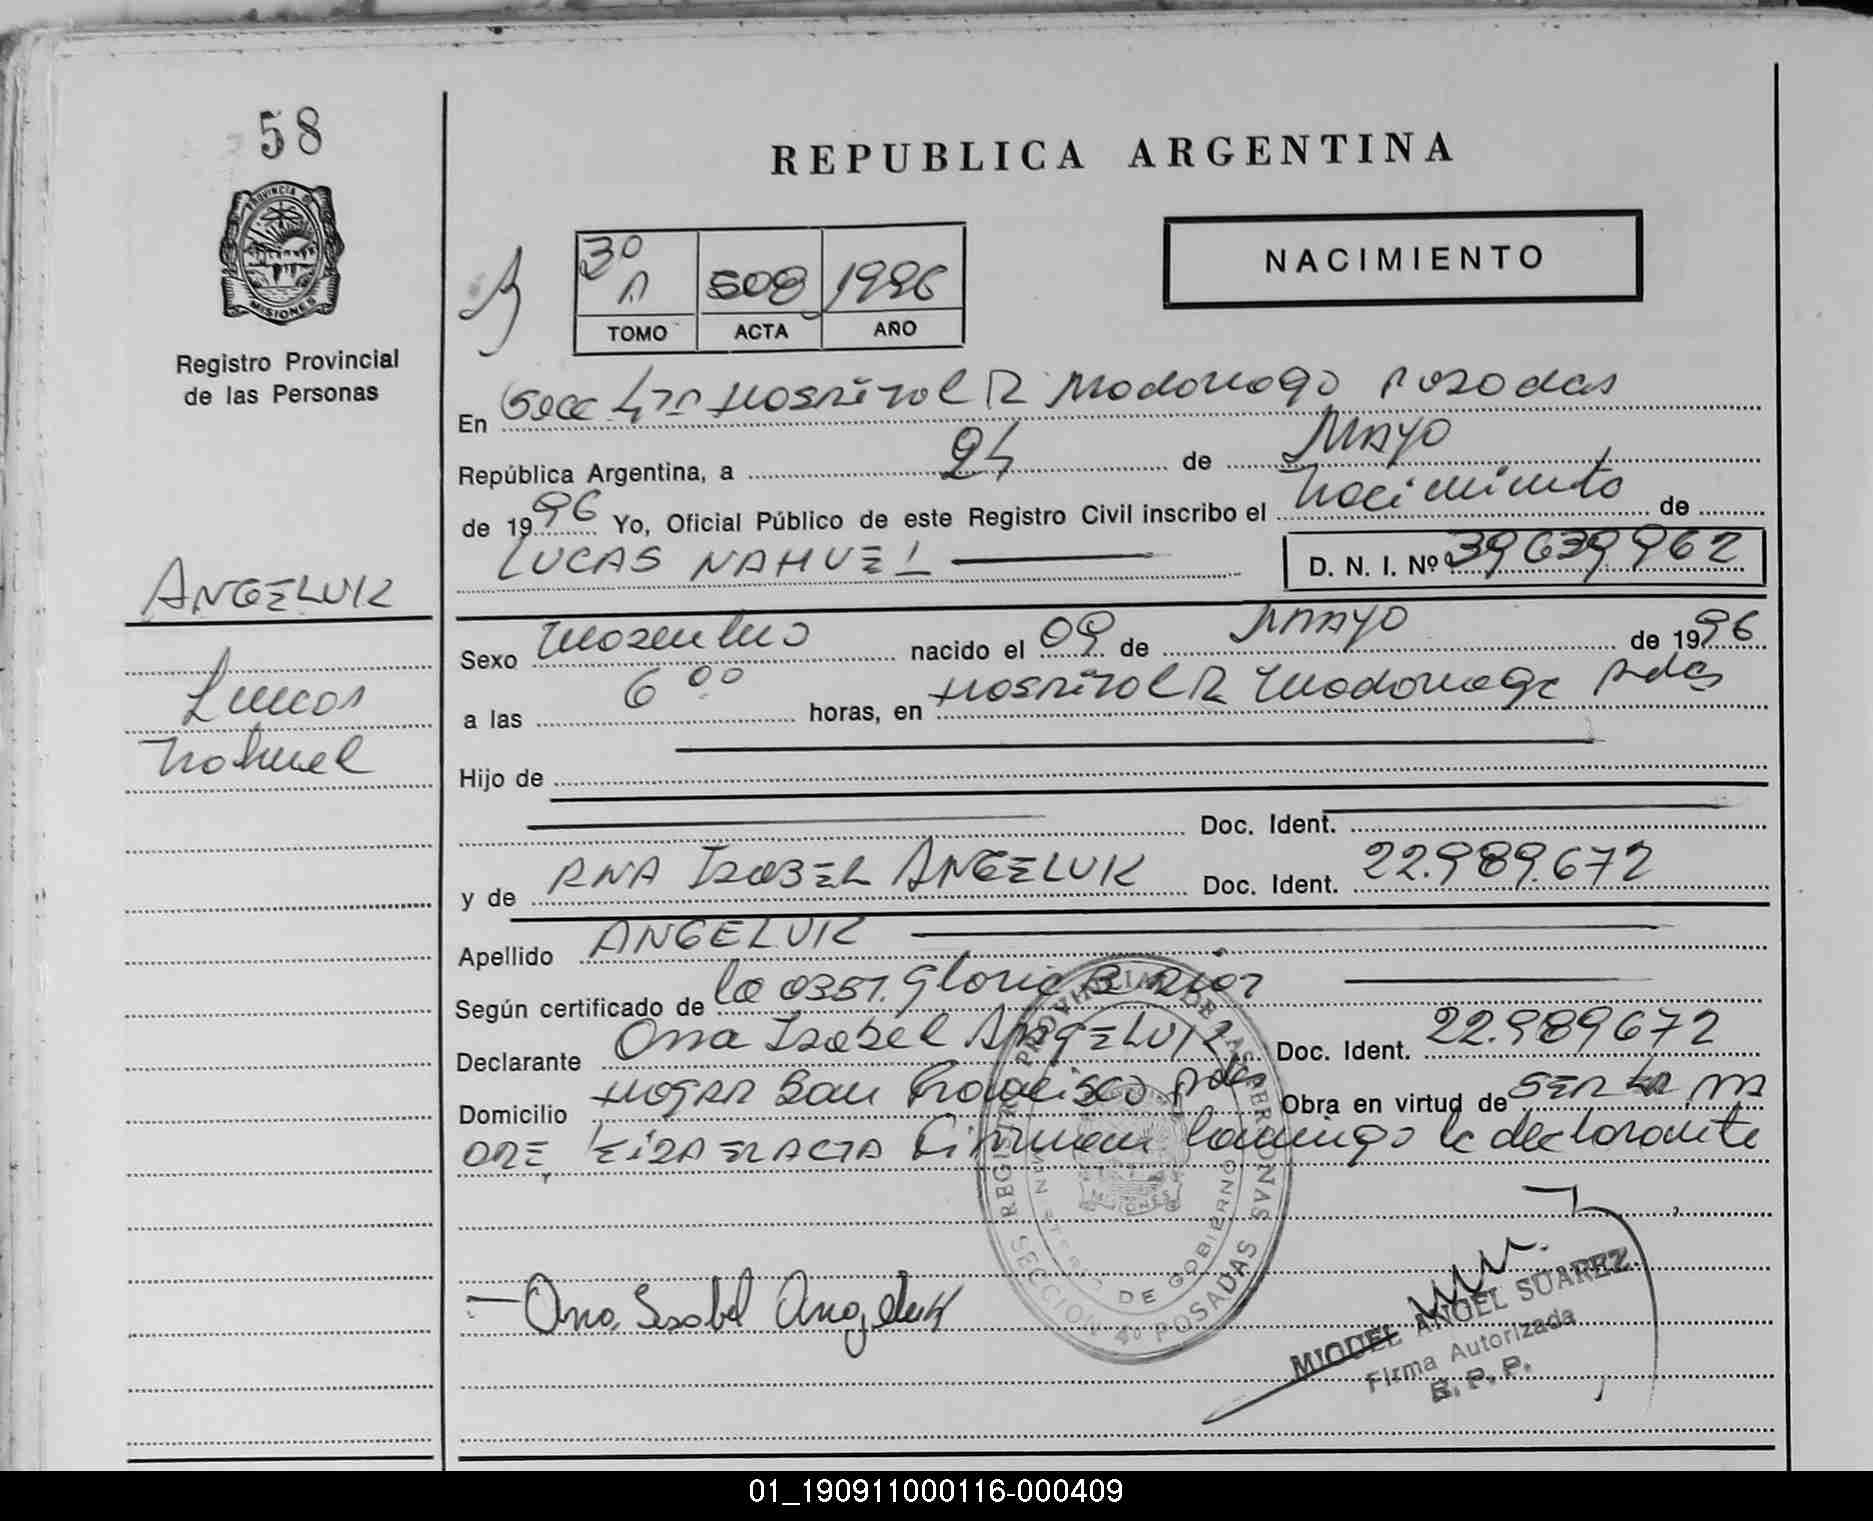 58
REPUBLICA ARGENTINA
PROVINCIA DE
MISIONES
Registro Provincial
de las Personas
3º A 508 1996
TOMO ACTA AÑO
NACIMIENTO
En Secc 4ta Hospital R Madariaga Posadas
República Argentina, a 24 de Mayo
de 1996 Yo, Oficial Público de este Registro Civil inscribo el Nacimiento de
LUCAS NAHUEL D. N. I. Nº 39639962
ANGELUK
Lucas
Nahuel
Sexo Masculino nacido el 09 de Mayo de 1996
a las 6 00 horas, en Hospital R Madariaga Pdas
Hijo de
Doc. Ident.
y de ANA ISABEL ANGELUK Doc. Ident. 22.989.672
Apellido ANGELUK
Según certificado de la Obst. Gloria B
Declarante Ana Isabel ANGELUK Doc. Ident. 22.989672
Domicilio Hogar San Francisco Pdas Obra en virtud de SER LA MA
DRE, LEIDA EL ACTA Firman conmigo la declarante
REGISTRO PROVINCIAL DE LAS PERSONAS
MINISTERIO DE GOBIERNO
SECCION 4º POSADAS
MISIONES
Ana Isabel Angeluk
MIGUEL ANGEL SUAREZ
Firma Autorizada
R. P. P.
01_190911000116-000409